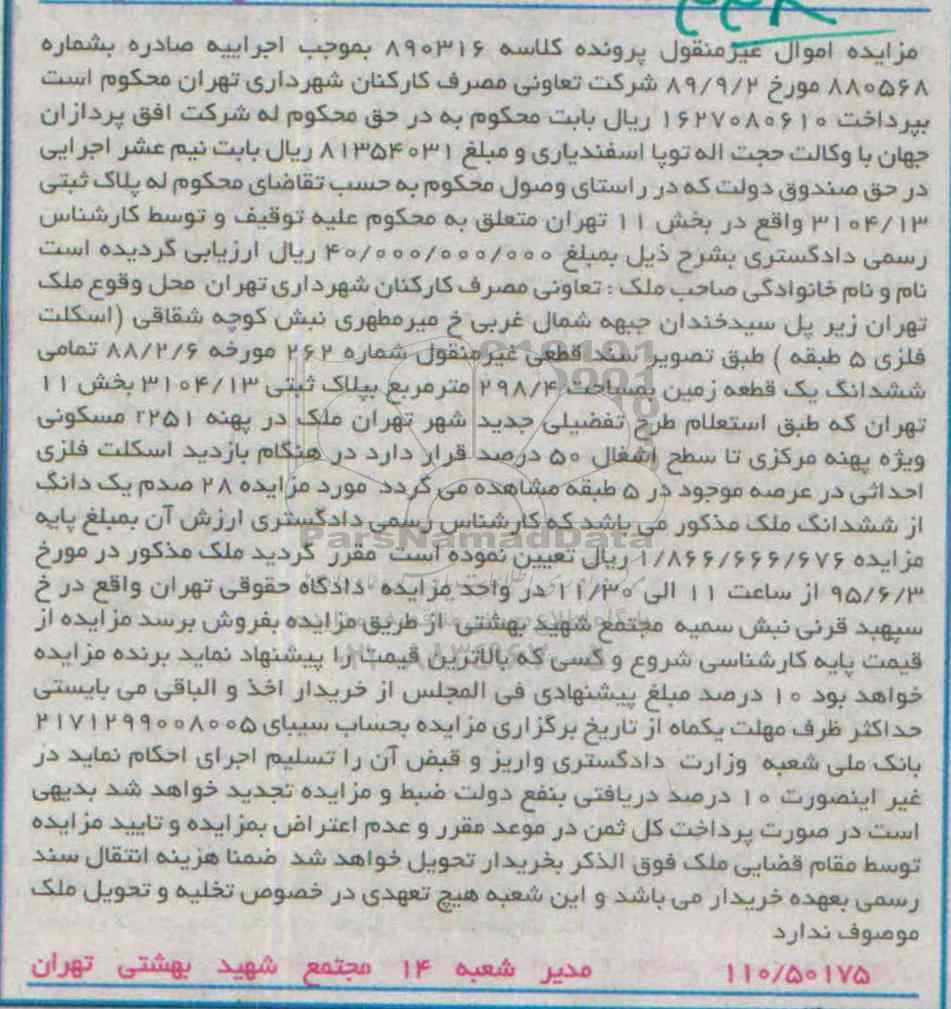 مزایده اموال غیرمنقول پرونده کلاسه ۸۹۰۳۱۶ بموجب اجراییه صادره بشماره
۸۸۰۵۶۸ مورخ ۸۹/۹/۲ شرکت تعاونی مصرف کارکنان شهرداری تهران محکوم است
بپرداخت ۱۶۲۷۰۸۰۶۱۰ ریال بابت محکوم به در حق محکوم له شرکت افق پردازان
جهان با وکالت حجت اله توپا اسفندیاری و مبلغ ۸۱۳۵۴۰۳۱ ریال بابت نیم عشر اجرایی
در حق صندوق دولت که در راستای وصول محکوم به حسب تقاضای محکوم له پلاک ثبتی
۳۱۰۴/۱۳ واقع در بخش ۱۱ تهران متعلق به محکوم علیه توقیف و توسط کارشناس
رسمی دادگستری بشرح ذیل بمبلغ ۴۰/۰۰۰/۰۰۰/۰۰۰ ریال ارزیابی گردیده است
نام و نام خانوادگی صاحب ملک : تعاونی مصرف کارکنان شهرداری تهران محل وقوع ملک
تهران زیر پل سیدخندان جبهه شمال غربی خ میرمطهری نبش کوچه شقاقی (اسکلت
فلزی ۵ طبقه ) طبق تصویر سند قطعی غیرمنقول شماره ۲۶۲ مورخه ۸۸/۲/۶ تمامی
ششدانگ یک قطعه زمین بمساحت ۲۹۸/۴ مترمربع بپلاک ثبتی ۳۱۰۴/۱۳ بخش ۱۱
تهران که طبق استعلام طرح تفضیلی جدید شهر تهران ملک در پهنه r۲۵۱ مسکونی
ویژه پهنه مرکزی تا سطح اشغال ۵۰ درصد قرار دارد در هنگام بازدید اسکلت فلزی
احداثی در عرصه موجود در ۵ طبقه مشاهده می گردد مورد مزایده ۲۸ صدم یک دانگ
از ششدانگ ملک مذکور می باشد که کارشناس رسمی دادگستری ارزش آن بمبلغ پایه
مزایده ۱/۸۶۶/۶۶۶/۶۷۶ ریال تعیین نموده است مقرر گردید ملک مذکور در مورخ
۹۵/۶/۳ از ساعت ۱۱ الی ۱۱/۳۰ در واحد مزایده دادگاه حقوقی تهران واقع در خ
سپهبد قرنی نبش سمیه مجتمع شهید بهشتی از طریق مزایده بفروش برسد مزایده از
قیمت پایه کارشناسی شروع و کسی که بالاترین قیمت را پیشنهاد نماید برنده مزایده
خواهد بود ۱۰ درصد مبلغ پیشنهادی فی المجلس از خریدار اخذ و الباقی می بایستی
حداکثر ظرف مهلت یکماه از تاریخ برگزاری مزایده بحساب سیبای ۲۱۷۱۲۹۹۰۰۸۰۰۵
بانک ملی شعبه وزارت دادگستری واریز و قبض آن را تسلیم اجرای احکام نماید در
غیر اینصورت ۱۰ درصد دریافتی بنفع دولت ضبط و مزایده تجدید خواهد شد بدیهی
است در صورت پرداخت کل ثمن در موعد مقرر و عدم اعتراض بمزایده و تایید مزایده
توسط مقام قضایی ملک فوق الذکر بخریدار تحویل خواهد شد ضمنا هزینه انتقال سند
رسمی بعهده خریدار می باشد و این شعبه هیچ تعهدی در خصوص تخلیه و تحویل ملک
موصوف ندارد
۱۱۰/۵۰۱۷۵ مدیر شعبه ۱۴ مجتمع شهید بهشتی تهران
ParsNamadData